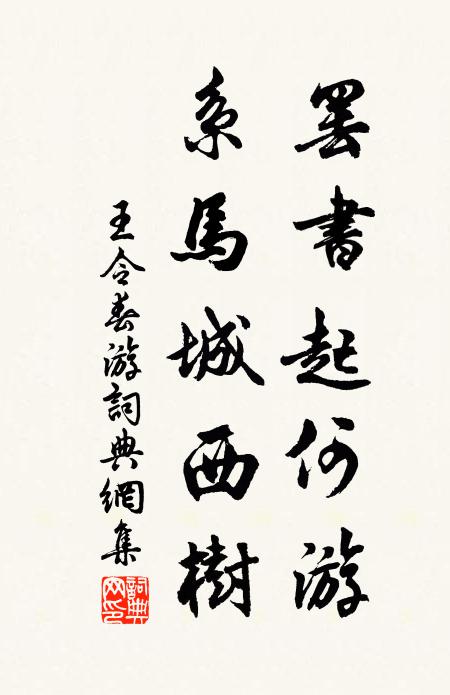 罢書起何游
系馬城西樹
王令春游詞典網集
詞典网印